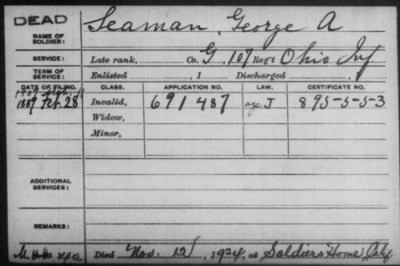 DEAD
NAME OF SOLDIER: Seaman, George A
SERVICE: Late rank, Co. G, 107 Reg't Ohio Inf
TERM OF SERVICE: Enlisted , 1 Discharged , 1
DATE OF FILING. CLASS. APPLICATION NO. LAW. CERTIFICATE NO.
1889 Feb. 28 Invalid, 691487 J 895-5-5-3
Widow,
Minor,
ADDITIONAL SERVICES:
REMARKS:
Died Nov. 12, 1924, at Soldiers Home, Calif